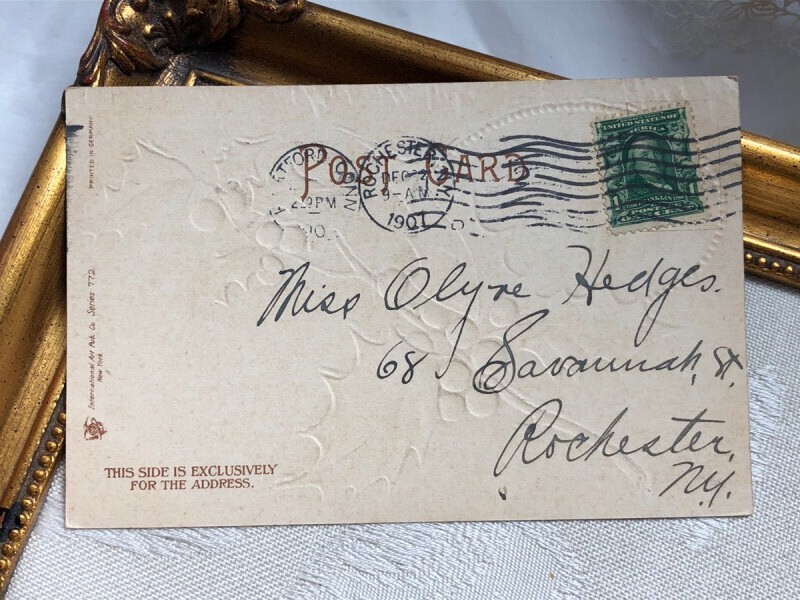 PRINTED IN GERMANY
POST CARD
ROCHESTER
DEC 2
9-AM
1901
UNITED STATES OF
AMERICA
1
Miss Olyve Hedges.
68 Savannah, St.
Rochester,
N.Y.
International Art Pub. Co. Series 772
New York
THIS SIDE IS EXCLUSIVELY
FOR THE ADDRESS.